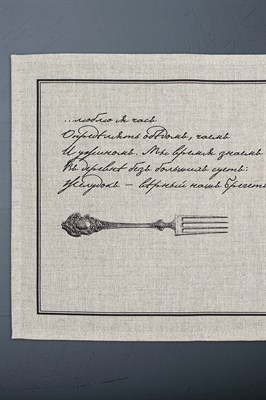 ...люблю я часъ
Опредѣлять обѣдомъ, чаемъ
И ужиномъ. Мы время знаемъ
Въ деревнѣ безъ большихъ суетъ:
Желудокъ — вѣрный нашъ брегетъ